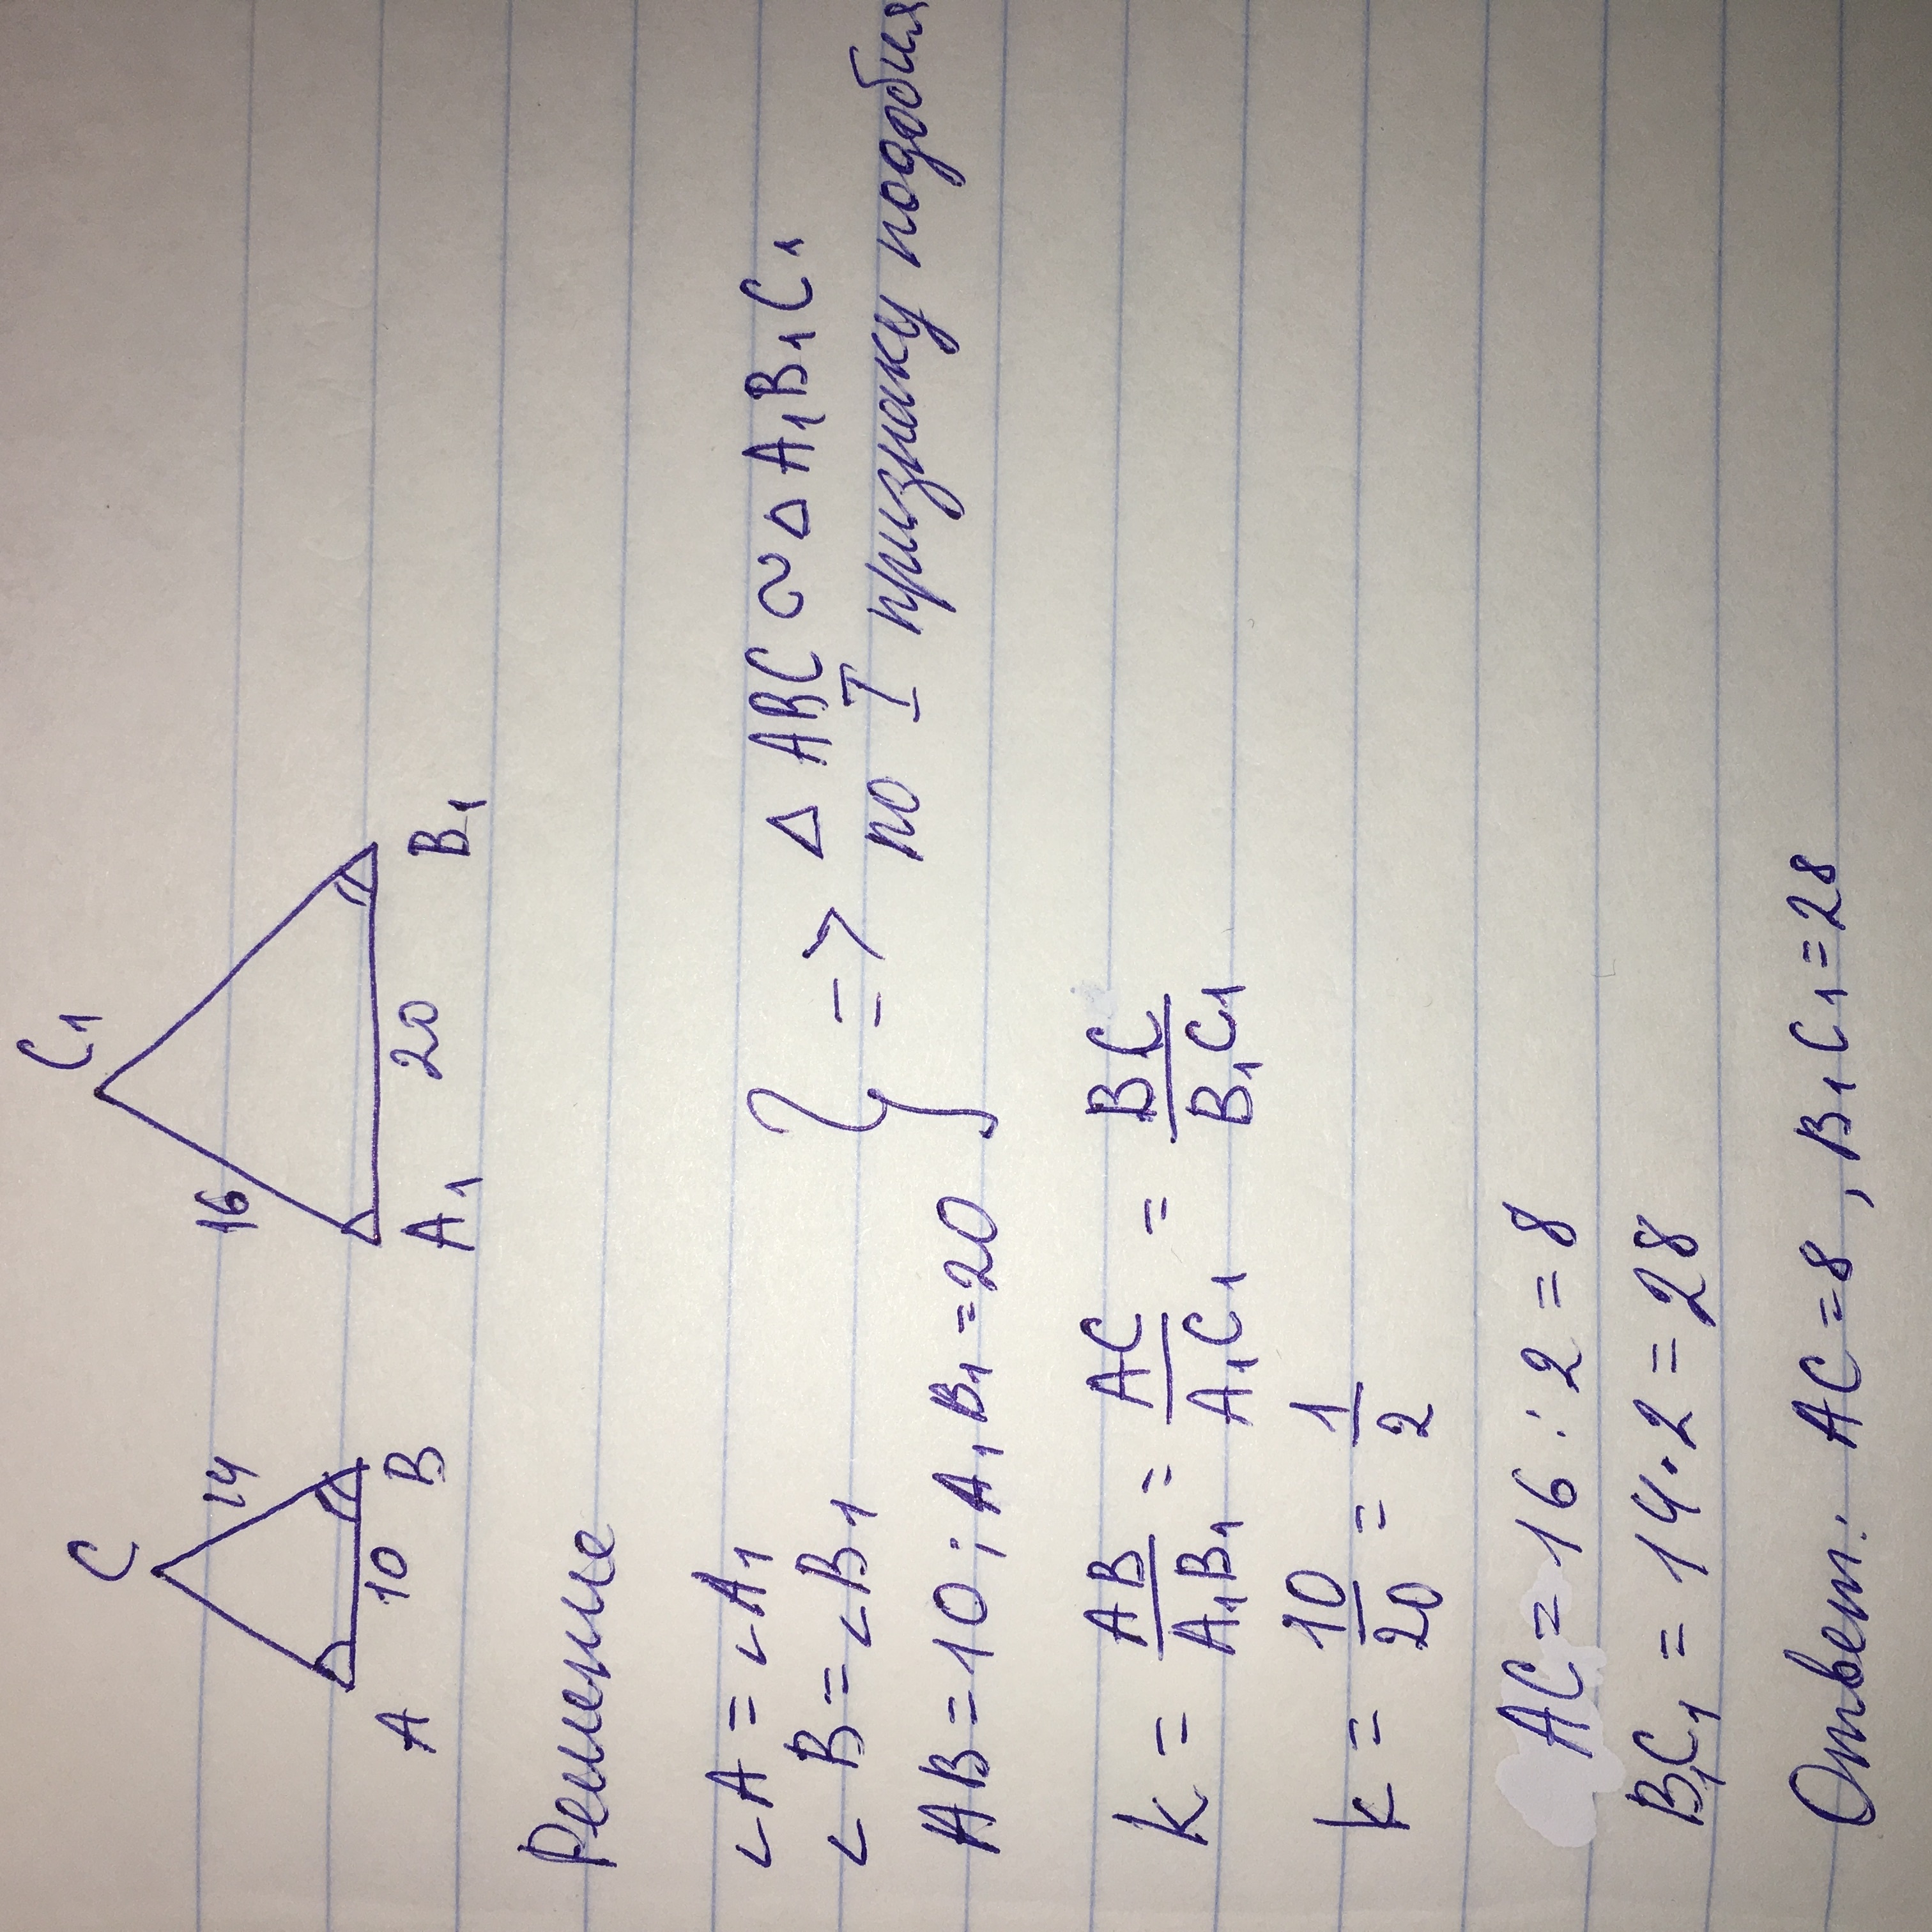 C
14
A
10
B
C₁
16
A₁
20
B₁
Решение
∠A = ∠A₁
∠B = ∠B₁
AB = 10; A₁B₁ = 20
} => △ ABC ∾ △ A₁B₁C₁
по I признаку подобия
k = AB/A₁B₁ = AC/A₁C₁ = BC/B₁C₁
k = 10/20 = 1/2
AC = 16 : 2 = 8
B₁C₁ = 14 · 2 = 28
Ответ: AC = 8, B₁C₁ = 28